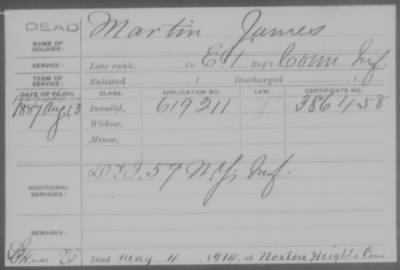 DEAD
Martin James
NAME OF SOLDIER:
SERVICE: Late rank, Co. E 11 Reg't Conn Inf.
TERM OF SERVICE: Enlisted , 1 Discharged , 1
DATE OF FILING. CLASS. APPLICATION NO. LAW. CERTIFICATE NO.
1887 Aug 13 Invalid, 619211 386458
Widow,
Minor,
ADDITIONAL SERVICES: D & I. 59 N.Y. Inf.
REMARKS:
Died May 4, 1914, at Noroton Heights Conn